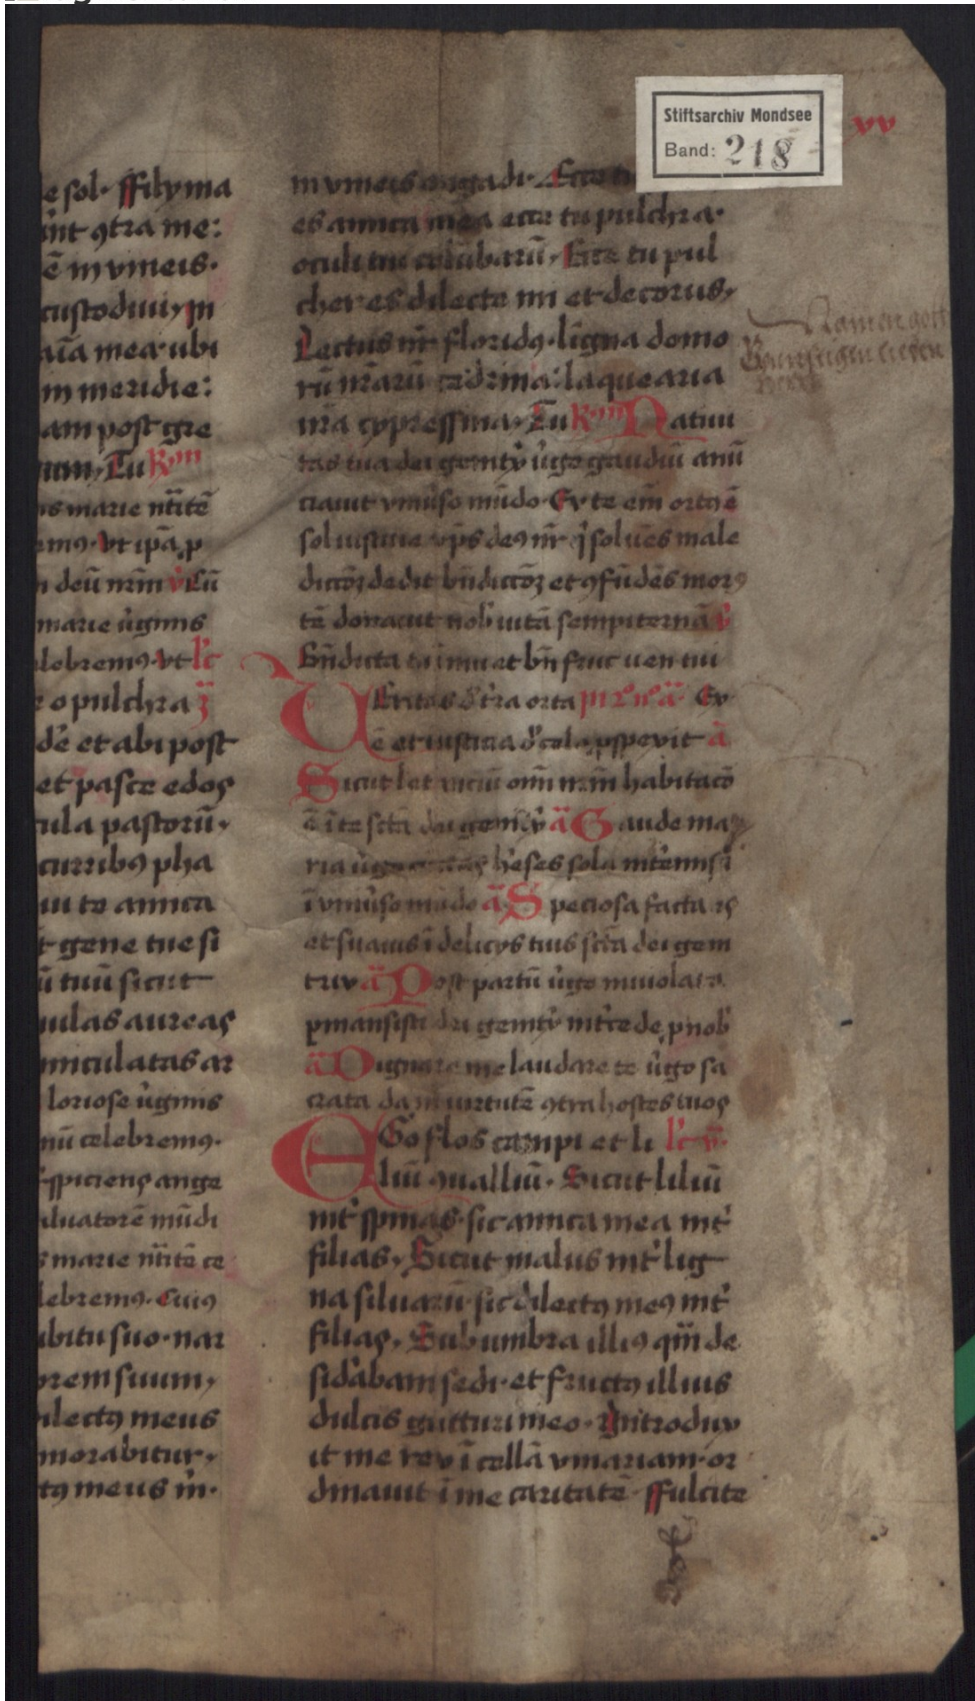 Stiftsarchiv Mondsee
Band: 218
xv
e sol. ffilij ma
int ꝯtra me:
ē in vineis.
custodiui, in
aīa mea. ubi
in meridie:
am post gre
Tu
is marie nītitē
emꝰ. vt ip̄a p̱
deū nr̄m v̇ Cū
marie v̇gīnis
lebremꝰ. vt lc̄
e o pulchra
de et abi post
et pasce edos
cula pastorū.
curribꝰ pha
ui te amica
gene tue si
ū tuū sicut
nulas aureas
miculatas ar
loriose v̇ginis
nū celebremꝰ.
spiciens ange
luatorē mūdi
marie nītitē ce
lebremꝰ. Cuiꝰ
bitu suo. nar
orem suum,
ilectꝰ meus
morabitur.
tꝰ meus m̄.
in vineis engadi. Ecce tu
es amica mea ecce tu pulchra.
oculi tui colūbarū. Ecce tu pul
cher es dilecte mi et decorus,
Lectus nr̄ floridꝰ. ligna domo
rū nr̄arū cedrina: laquearia
nr̄a cypressina. Tu Natiui
tas tua dei genit̄ v̇go gaudiū anū
ciauit vniūso mūdo. Ex te em̄ ortꝰ ē
sol iusticie xp̄s deꝰ nr̄. q̇ soluēs male
dictōꝫ dedit bn̄dictōꝫ et ꝯfūdēs mor
tē donauit nob̄ uitā sempiternā v̇
Bn̄dicta tu in mu et bn̄ fruc uen tui
Ueritas d̄ t̄ra orta Ex
ē et iusticia d̄ celo p̱spexit ā
Sicut letanciū om̄ nr̄m habitacō
ē ī te sctā dei genit̄ ā Gaude ma
ria v̇go cūctas h̄eses sola int̄emisti
ī vniūso mūdo ā Speciosa facta es
et suauis ī delicijs tuis sctā dei geni
trix ā Post partū v̇go inuiolata
p̱mansisti dei genit̄ int̄cede p̱ nob̄
ā Dignare me laudare te v̇go sa
crata da m̄ uirtutē ꝯtra hostes tuos
EGo flos campi et li lc̄ v̄
liū ꝯualliū. Sicut liliū
int̄ spinas. sic amica mea int̄
filias, Sicut malus int̄ lig
na siluarū. sic dilectꝰ meꝰ int̄
filios, Sub umbra illiꝰ quā de
sid̄abam sedi. et fructꝰ illius
dulcis gutturi meo. Introdux
it me rex ī cellā vinariam. or
dinauit ī me caritatē. ffulcite